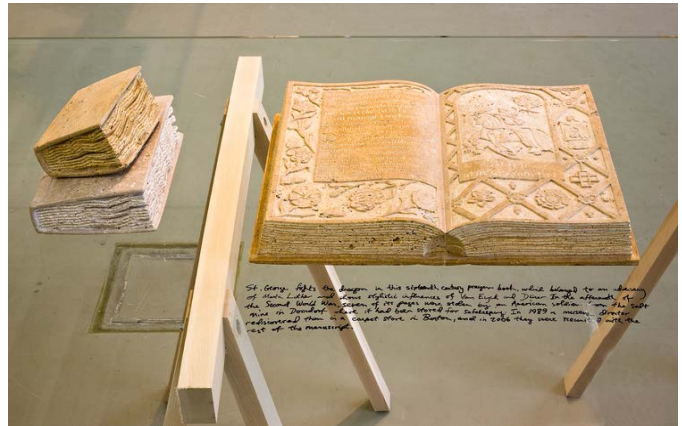 St. George fights the dragon in this sixteenth century prayer book, which belonged to an admirer
of Martin Luther and shows stylistic influences of Van Eyck and Dürer. In the aftermath of
the Second World War, seven of its pages were stolen by an American soldier from the salt
mine in where it had been stored for safekeeping. In 1989 a museum director
rediscovered them in a carpet store in Boston, and in 2006 they were reunited with the
rest of the manuscript.